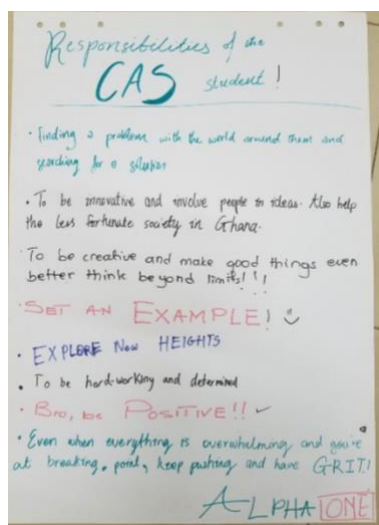 Responsibilities of the
CAS student!
· Finding a problem with the world around them and
searching for a solution
· To be innovative and involve people in ideas. Also help
the less fortunate society in Ghana.
To be creative and make good things even
better think beyond limits!!!
· SET AN EXAMPLE!
· EXPLORE New HEIGHTS
· To be hard-working and determined
· Bro, be POSITIVE!!
· Even when everything is overwhelming and you're
at breaking point, keep pushing and have GRIT!
ALPHA ONE